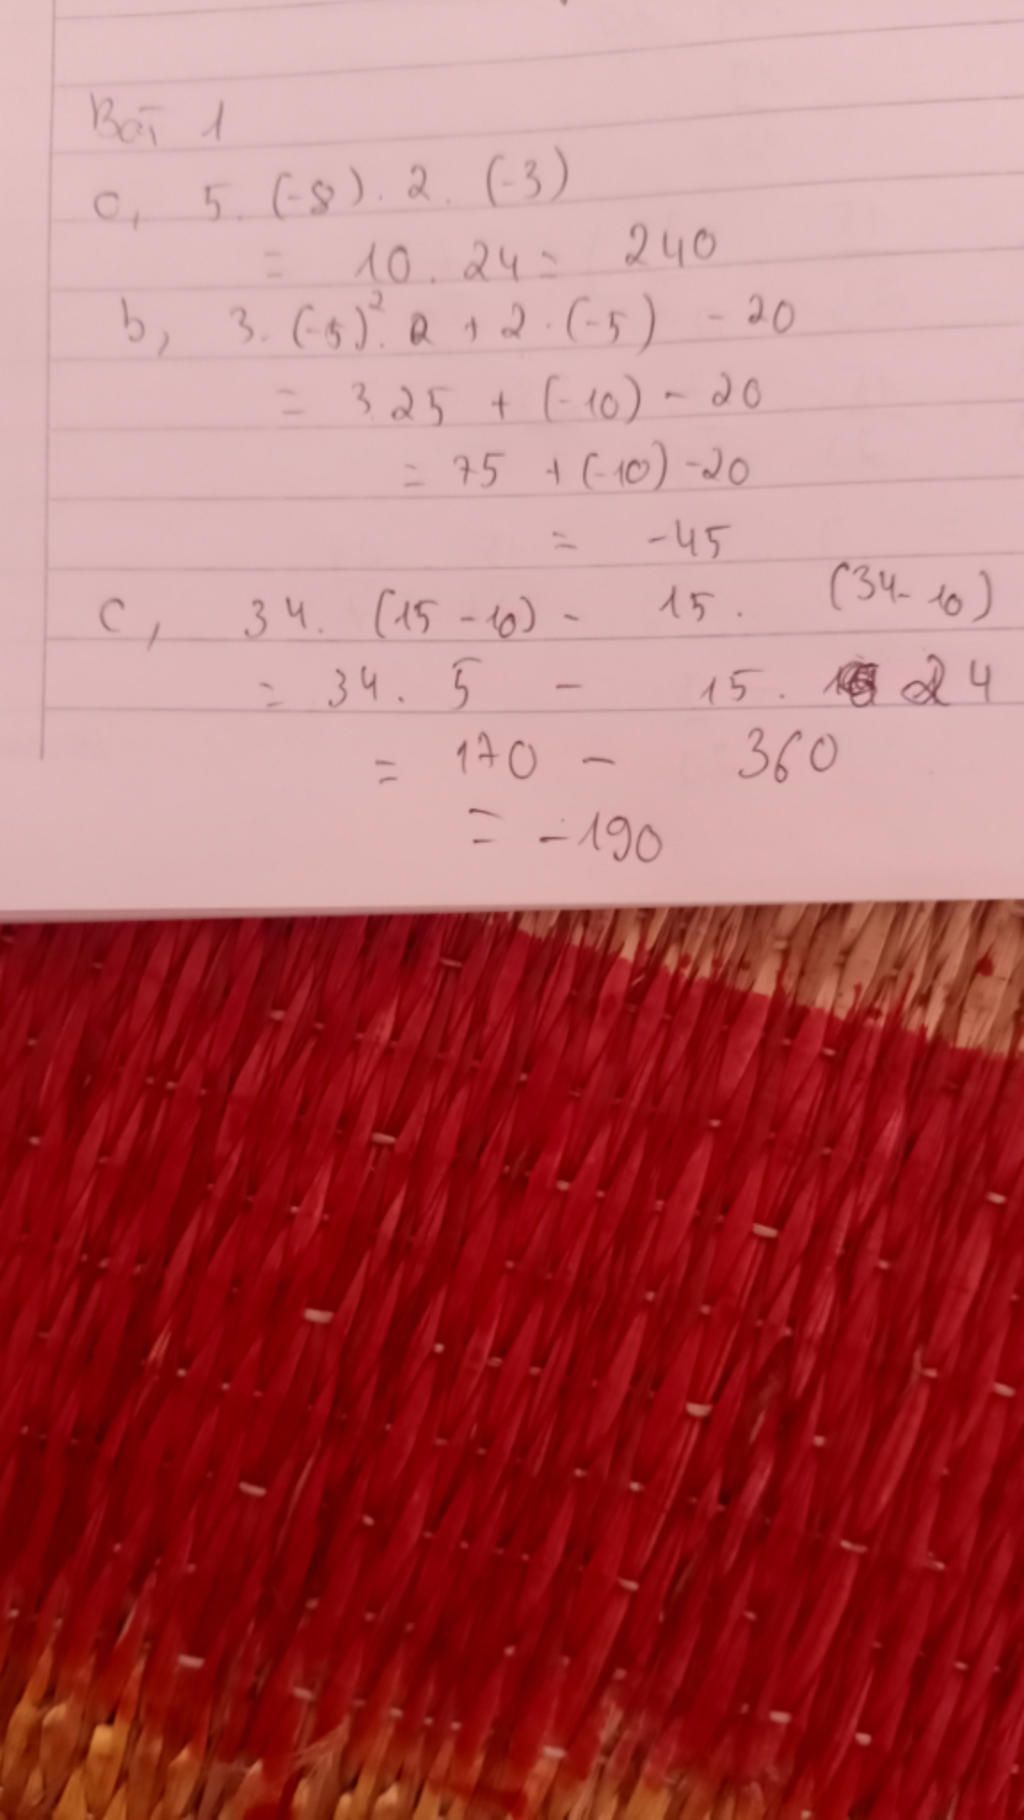 Bài 1
a, 5. (-8). 2. (-3)
= 10. 24 = 240
b, 3. (-5)². 2 + 2. (-5) - 20
= 3.25 + (-10) - 20
= 75 + (-10) - 20
= -45
c, 34. (15 - 10) - 15. (34 - 10)
= 34. 5 - 15. 24
= 170 - 360
= -190